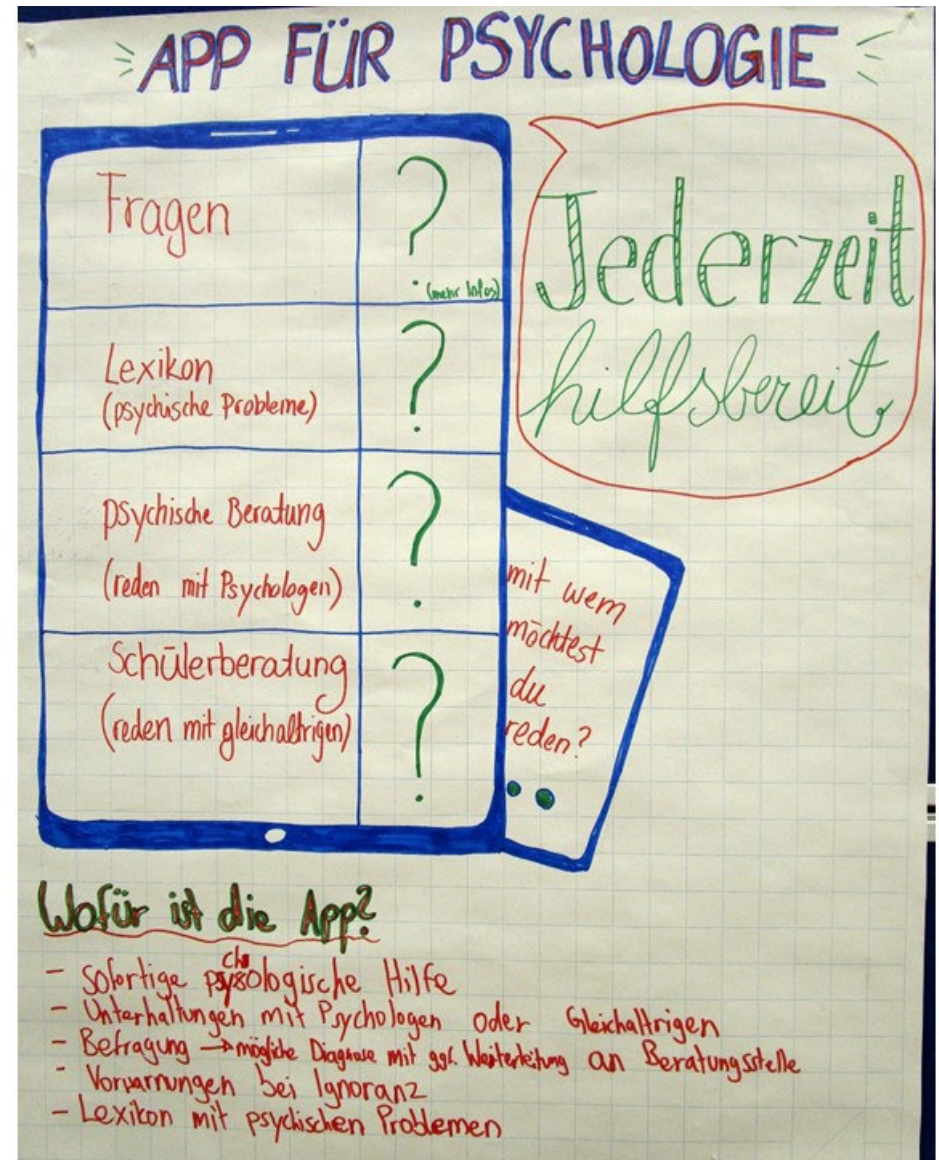 APP FÜR PSYCHOLOGIE
Fragen
?
(mehr Infos)
Lexikon
(psychische Probleme)
?
psychische Beratung
(reden mit Psychologen)
?
Schülerberatung
(reden mit gleichaltrigen)
?
Jederzeit
hilfsbereit
mit wem
möchtest
du
reden?
Wofür ist die App?
- Sofortige psychologische Hilfe
- Unterhaltungen mit Psychologen oder Gleichaltrigen
- Befragung → mögliche Diagnose mit ggf. Weiterleitung an Beratungsstelle
- Vorwarnungen bei Ignoranz
- Lexikon mit psychischen Problemen